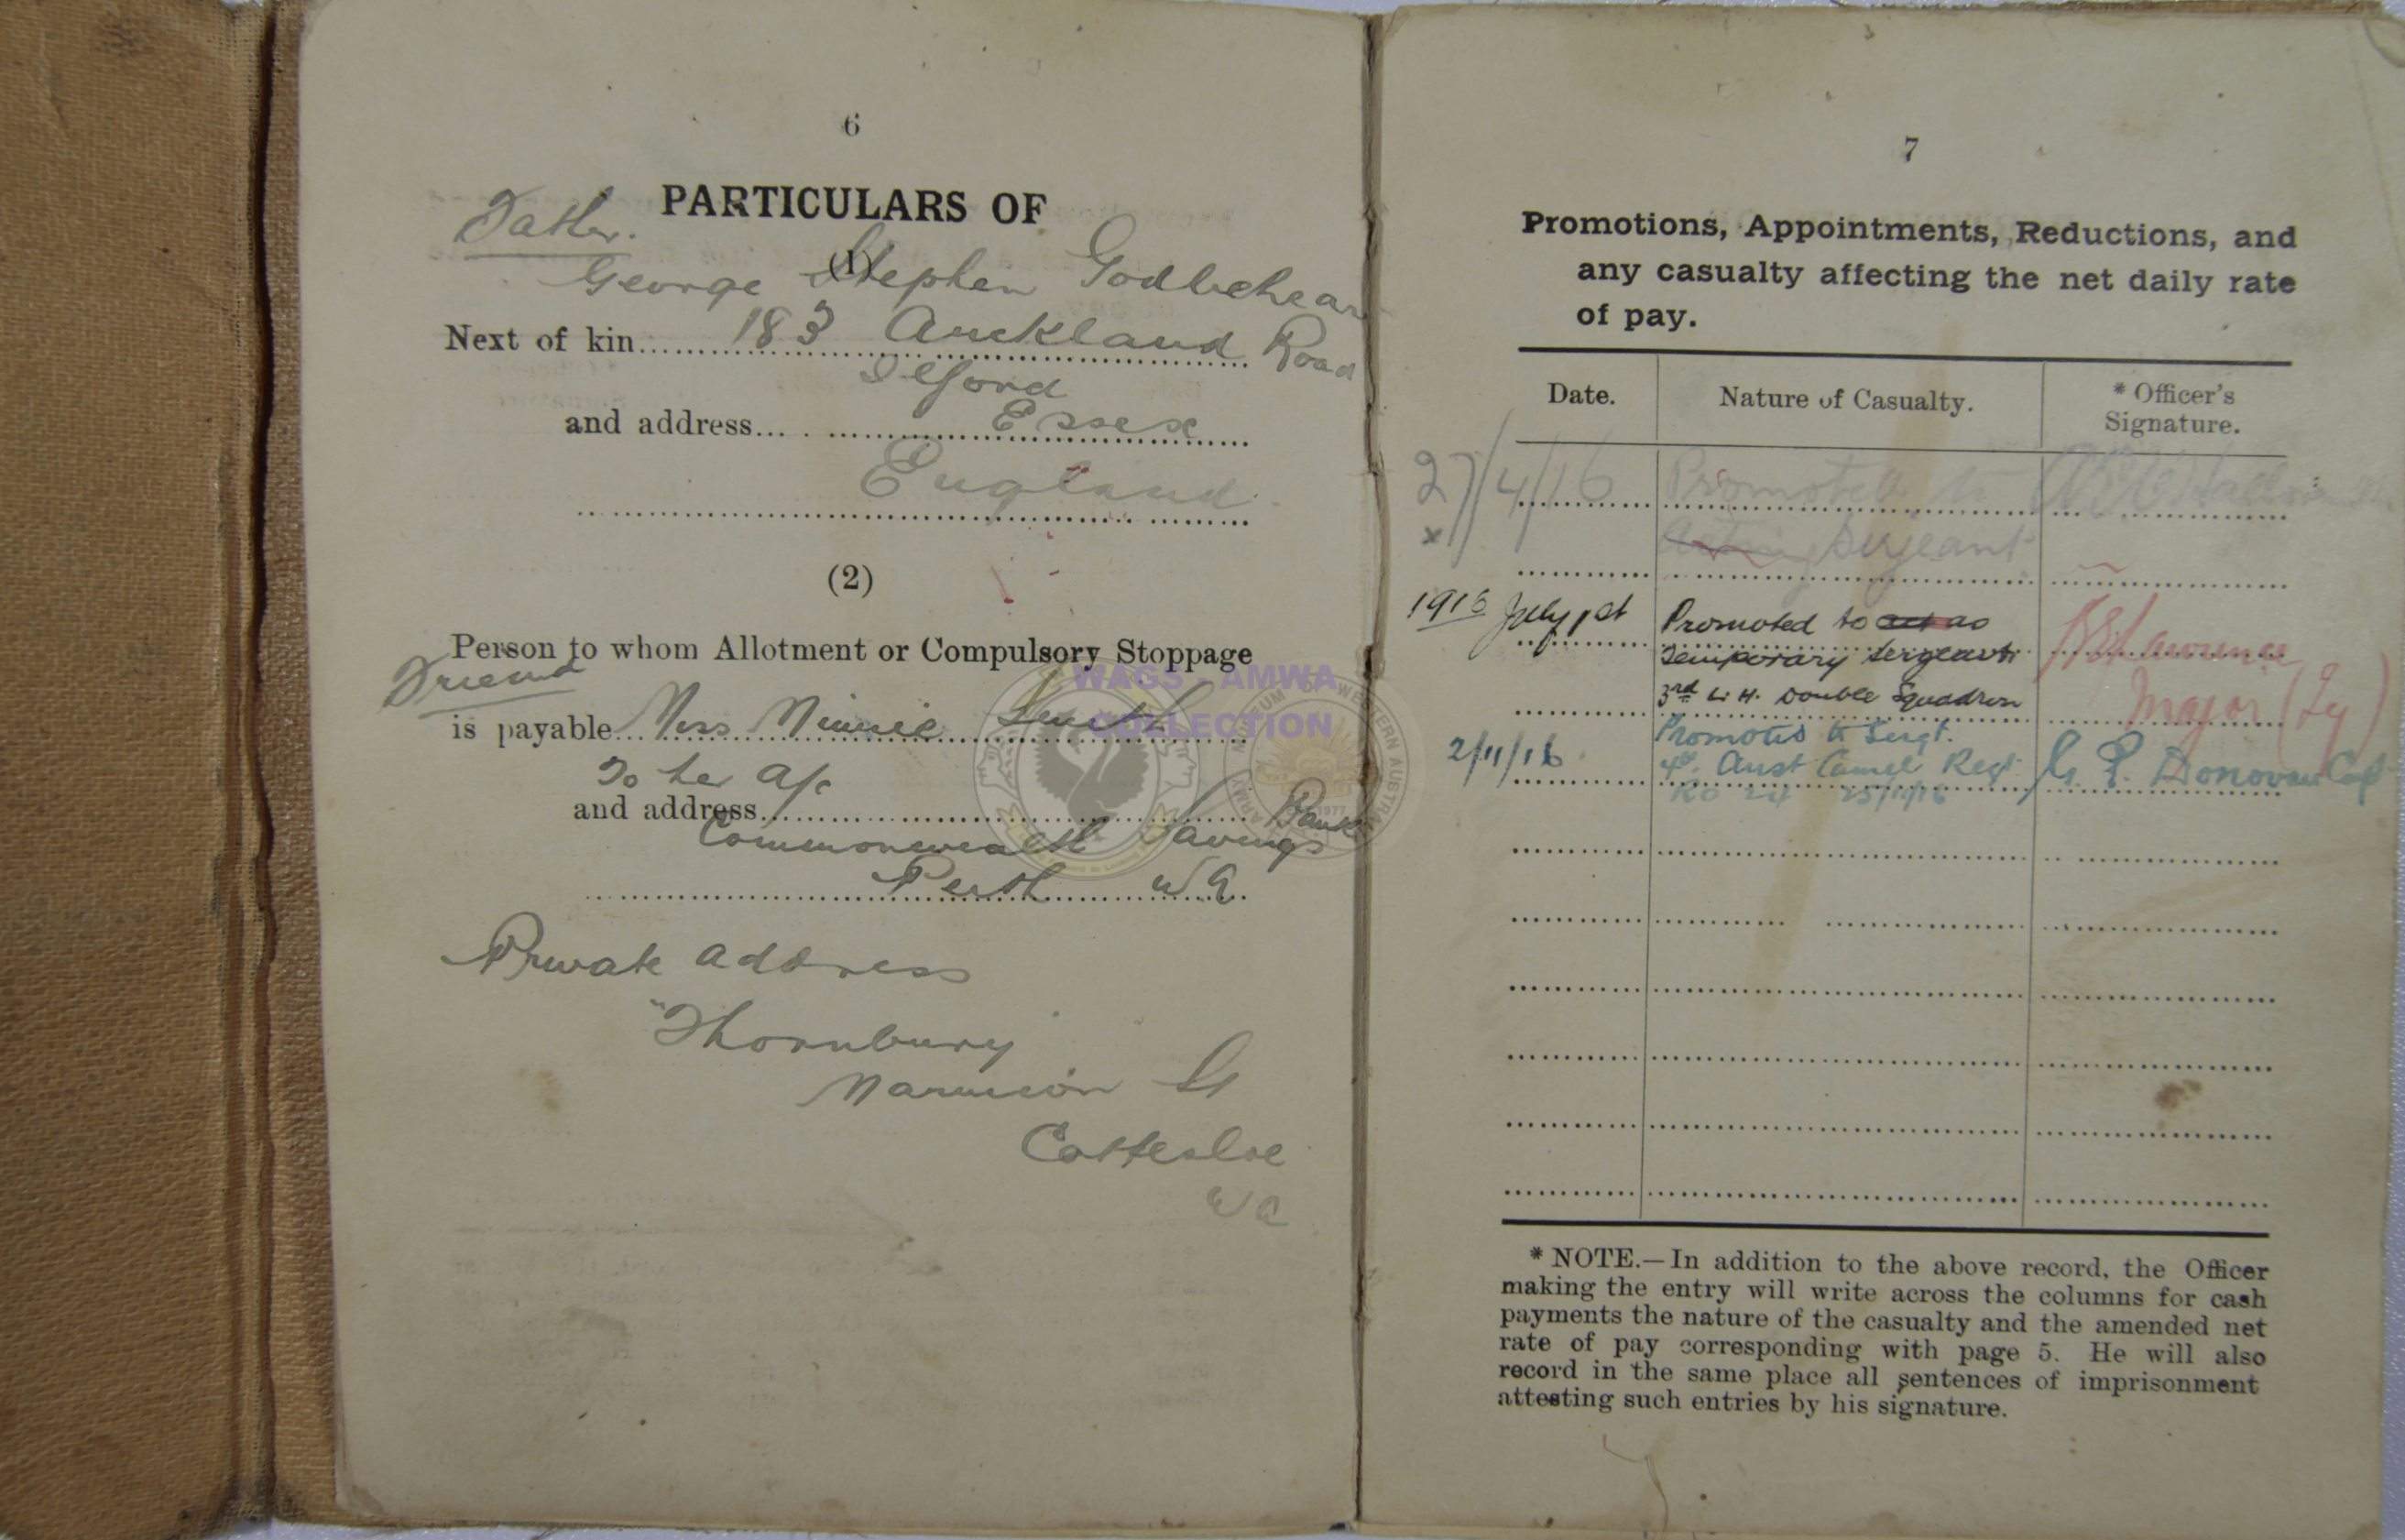 6
PARTICULARS OF
Father.
(1)
George Stephen Godbehear
Next of kin 183 Auckland Road
Ilford
and address Essex
England
(2)
Person to whom Allotment or Compulsory Stoppage
Friend
is payable Miss Minnie Smith
To her a/c
and address
Commonwealth Savings Bank
Perth W.A.
Private address
"Thornbury
Marmion St
Cottesloe
WA
WAGS - AMWA
COLLECTION
7
Promotions, Appointments, Reductions, and
any casualty affecting the net daily rate
of pay.
Date. Nature of Casualty. * Officer's Signature.
27/4/16 Promoted to
x Acting Sergeant
1916 July 1st Promoted to act as
Temporary Sergeant
3rd L.H. Double Squadron Major
2/11/16 Promoted to Sergt.
4th Aust Camel Regt G. P. Donovan Capt
RO 24 25/11/16
* NOTE.—In addition to the above record, the Officer
making the entry will write across the columns for cash
payments the nature of the casualty and the amended net
rate of pay corresponding with page 5. He will also
record in the same place all sentences of imprisonment
attesting such entries by his signature.